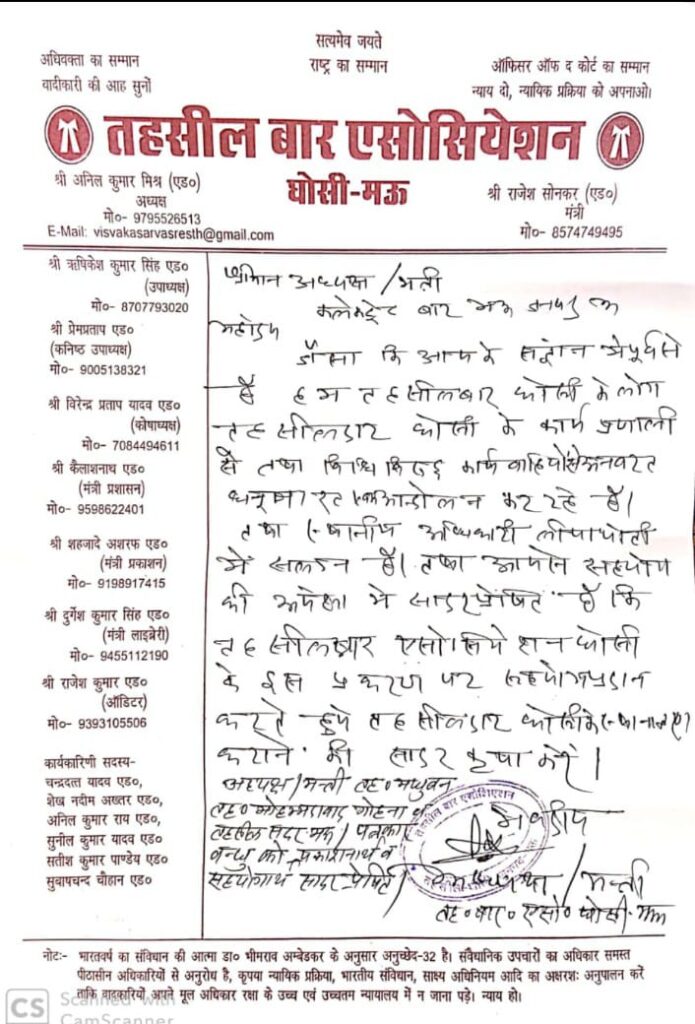 सत्यमेव जयते
अधिवक्ता का सम्मान राष्ट्र का सम्मान ऑफिसर ऑफ द कोर्ट का सम्मान
वादीकारी की आह सुनों न्याय दो, न्यायिक प्रक्रिया को अपनाओ।
तहसील बार एसोसियेशन
घोसी-मऊ
श्री अनिल कुमार मिश्र (एड०)
अध्यक्ष
मो०- 9795526513
E-Mail: visvakasarvasresth@gmail.com
श्री राजेश सोनकर (एड०)
मंत्री
मो०- 8574749495
श्री ऋषिकेश कुमार सिंह एड०
(उपाध्यक्ष)
मो०- 8707793020
श्री प्रेमप्रताप एड०
(कनिष्ठ उपाध्यक्ष)
मो०- 9005138321
श्री विरेन्द्र प्रताप यादव एड०
(कोषाध्यक्ष)
मो०- 7084494611
श्री कैलाशनाथ एड०
(मंत्री प्रशासन)
मो०- 9598622401
श्री शहजादे अशरफ एड०
(मंत्री प्रकाशन)
मो०- 9198917415
श्री दुर्गेश कुमार सिंह एड०
(मंत्री लाइब्रेरी)
मो०- 9455112190
श्री राजेश कुमार एड०
(ऑडिटर)
मो०- 9393105506
कार्यकारिणी सदस्य-
चन्द्रदत्त यादव एड०,
शेख नदीम अख्तर एड०,
अनिल कुमार राय एड०,
सुनील कुमार यादव एड०
सतीश कुमार पाण्डेय एड०
सुबाषचन्द चौहान एड०
श्रीमान अध्यक्ष / मंत्री
कलेक्ट्रेट बार मऊ जनपद मऊ
महोदय
जैसा कि आप के संज्ञान मे पूर्व से
है हम तहसील बार घोसी के लोग
तहसीलदार घोसी के कार्य प्रणाली
से तथा विधि विरुद्ध कार्यवाहियों से अनवरत
आन्दोलन कर रहे है।
तथा स्थानीय अधिकारी लीपापोती
में संलग्न है। तथा आपसे सहयोग
की अपेक्षा मे सादर प्रेषित है कि
तहसील बार एसोसियेशन घोसी
के इस प्रकरण पर सहयोग प्रदान
करते हुये तहसीलदार घोसी के स्थानान्तरण
कराने की सादर कृपा करें।
अध्यक्ष/मन्त्री तह० मधुबन
तह० मोहम्मदाबाद गोहना व
तहसील सदर मऊ / पत्रकार
बन्धु को प्रकाशनार्थ व
सहयोगार्थ सादर प्रेषित
भवदीय
अध्यक्ष / मन्त्री
तह० बार० एसो० घोसी-मऊ
तहसील बार एसोशिएशन
नोट:- भारतवर्ष का संविधान की आत्मा डा० भीमराव अम्बेडकर के अनुसार अनुच्छेद-32 है। संवैधानिक उपचारों का अधिकार समस्त
पीठासीन अधिकारियों से अनुरोध है, कृपया न्यायिक प्रक्रिया, भारतीय संविधान, साक्ष्य अधिनियम आदि का अक्षरशः अनुपालन करें
ताकि वादकारियों अपने मूल अधिकार रक्षा के उच्च एवं उच्चतम न्यायालय में न जाना पड़े। न्याय हो।
CS Scanned with
CamScanner